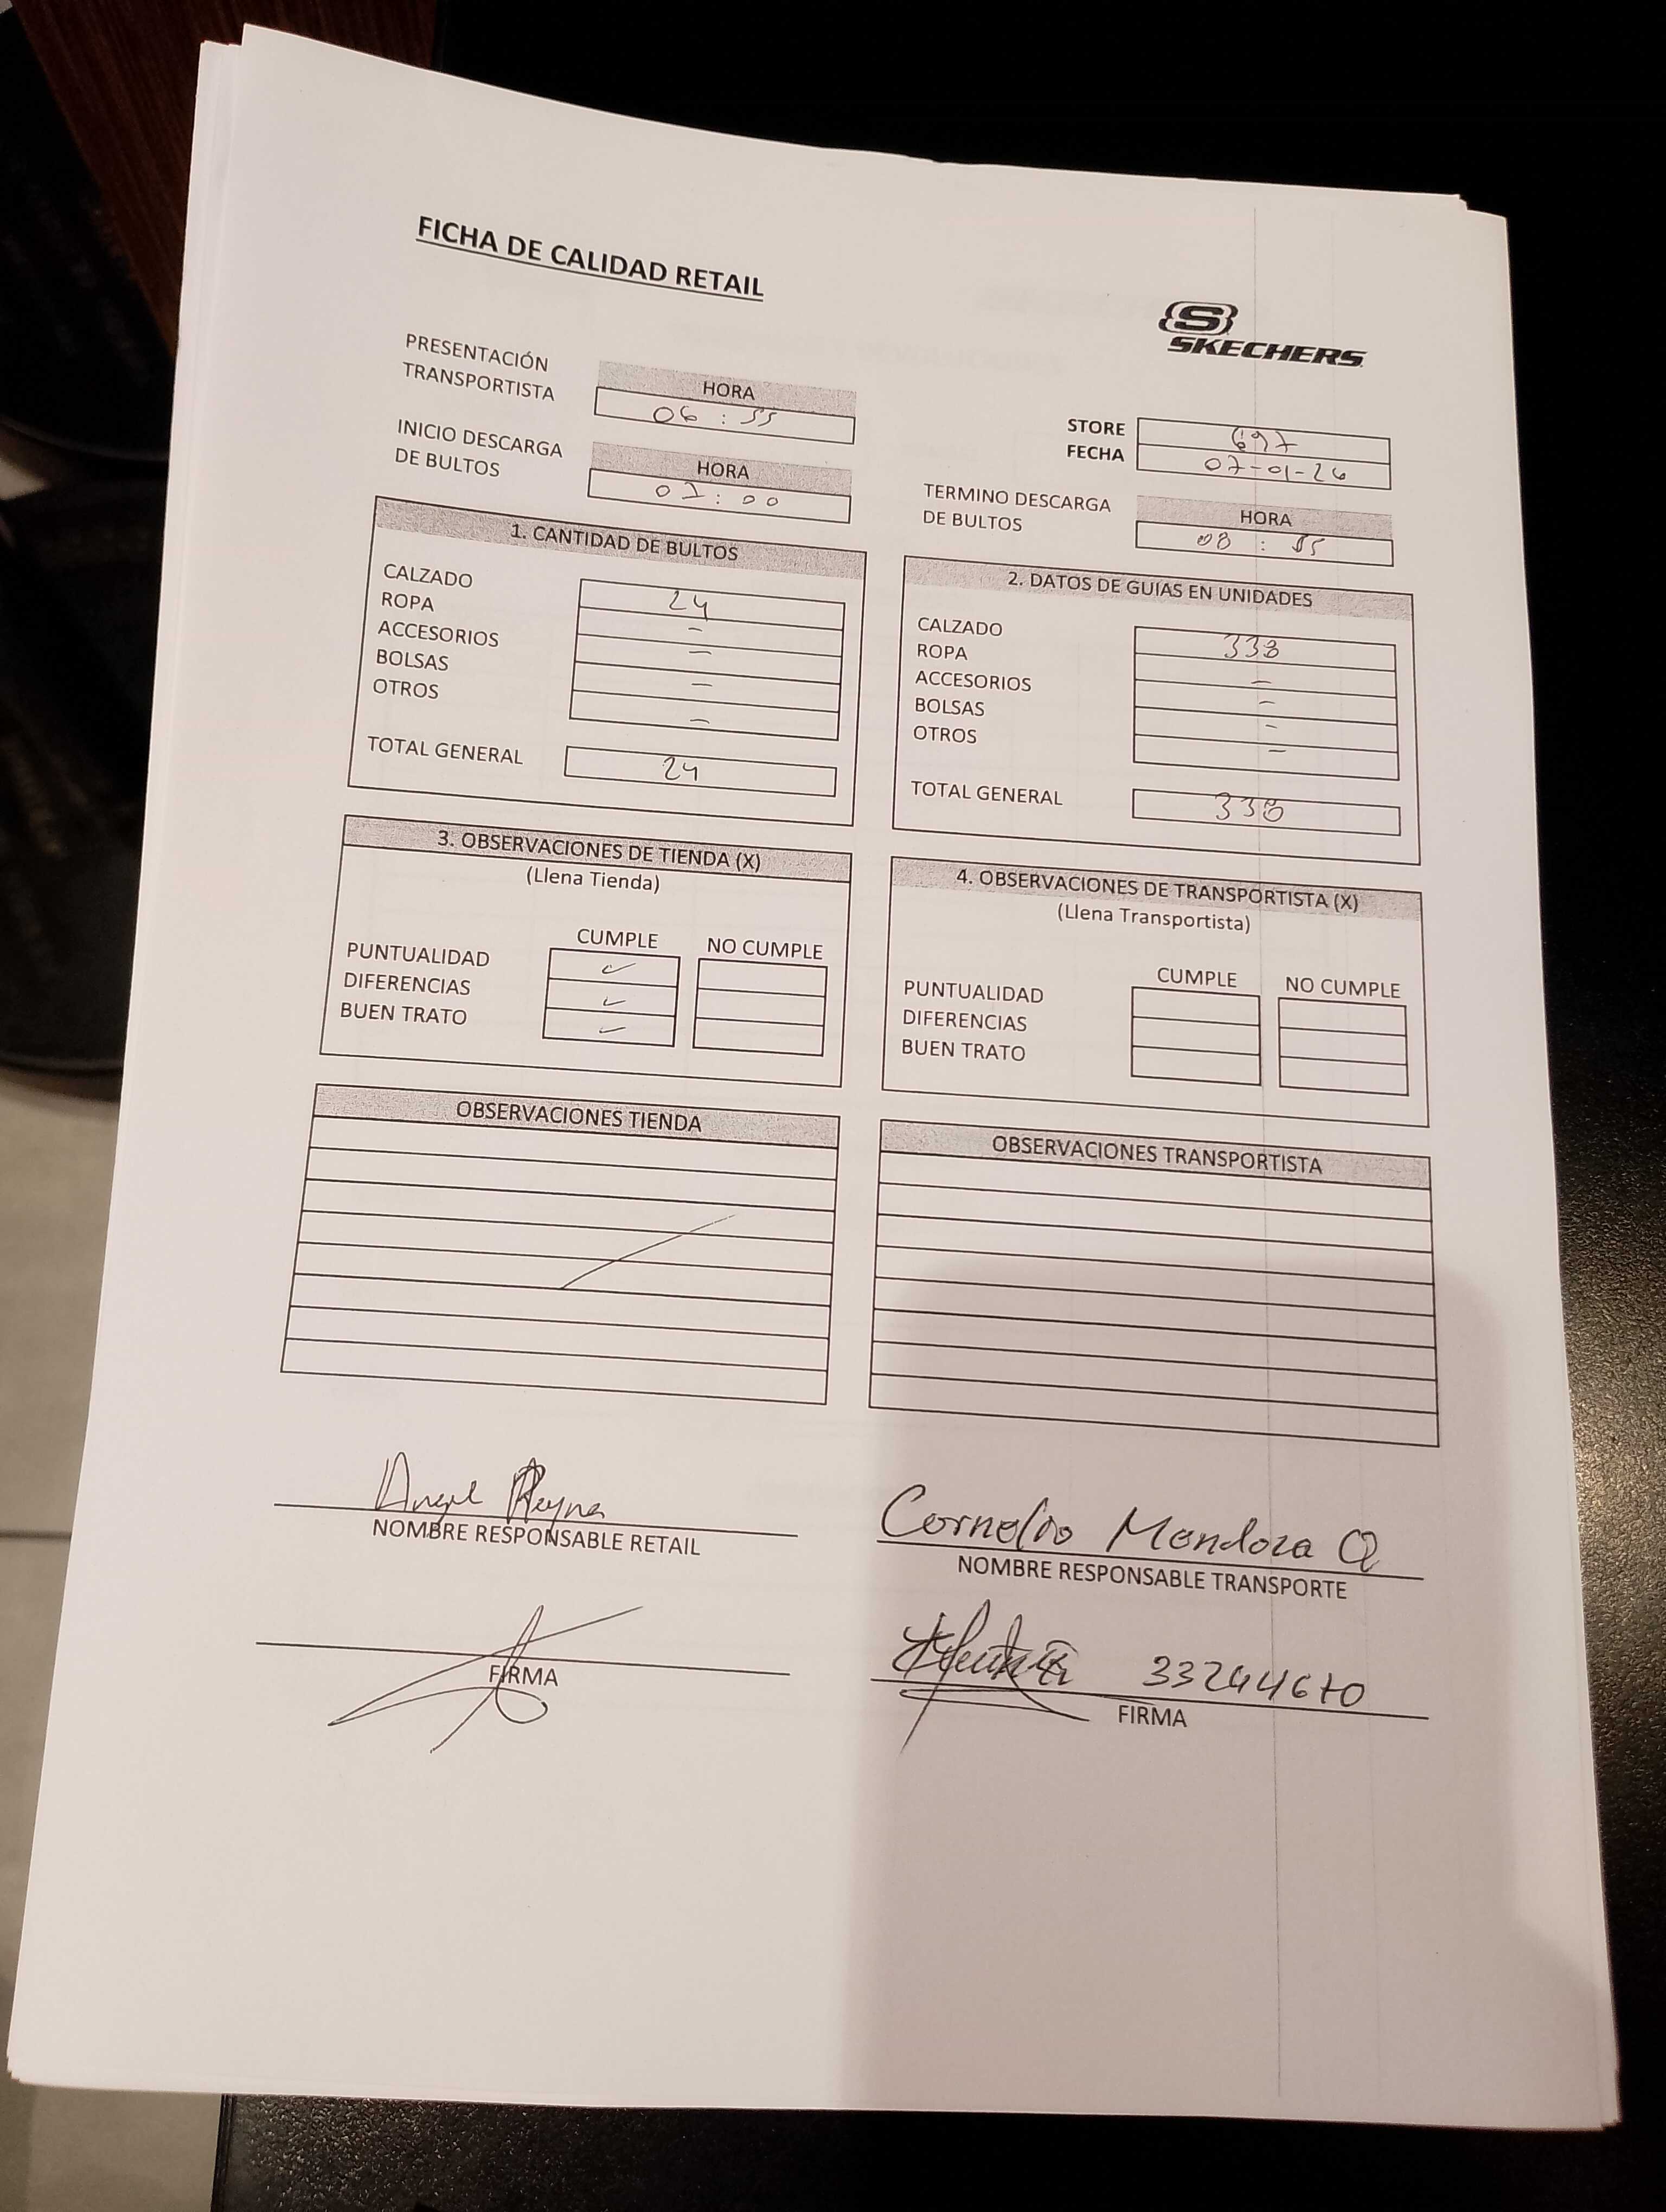 FICHA DE CALIDAD RETAIL
SKECHERS
PRESENTACIÓN
TRANSPORTISTA
HORA
06 : 55
INICIO DESCARGA
DE BULTOS
HORA
07 : 00
STORE 697
FECHA 07-01-26
TERMINO DESCARGA
DE BULTOS
HORA
08 :
1. CANTIDAD DE BULTOS
CALZADO 24
ROPA –
ACCESORIOS –
BOLSAS –
OTROS –
TOTAL GENERAL 24
2. DATOS DE GUIAS EN UNIDADES
CALZADO 338
ROPA –
ACCESORIOS –
BOLSAS –
OTROS –
TOTAL GENERAL 338
3. OBSERVACIONES DE TIENDA (X)
(Llena Tienda)
CUMPLE NO CUMPLE
PUNTUALIDAD ✓
DIFERENCIAS ✓
BUEN TRATO ✓
4. OBSERVACIONES DE TRANSPORTISTA (X)
(Llena Transportista)
CUMPLE NO CUMPLE
PUNTUALIDAD
DIFERENCIAS
BUEN TRATO
OBSERVACIONES TIENDA
OBSERVACIONES TRANSPORTISTA
Angel Reyna
NOMBRE RESPONSABLE RETAIL
Cornelio Mendoza Q
NOMBRE RESPONSABLE TRANSPORTE
FIRMA
33244670
FIRMA